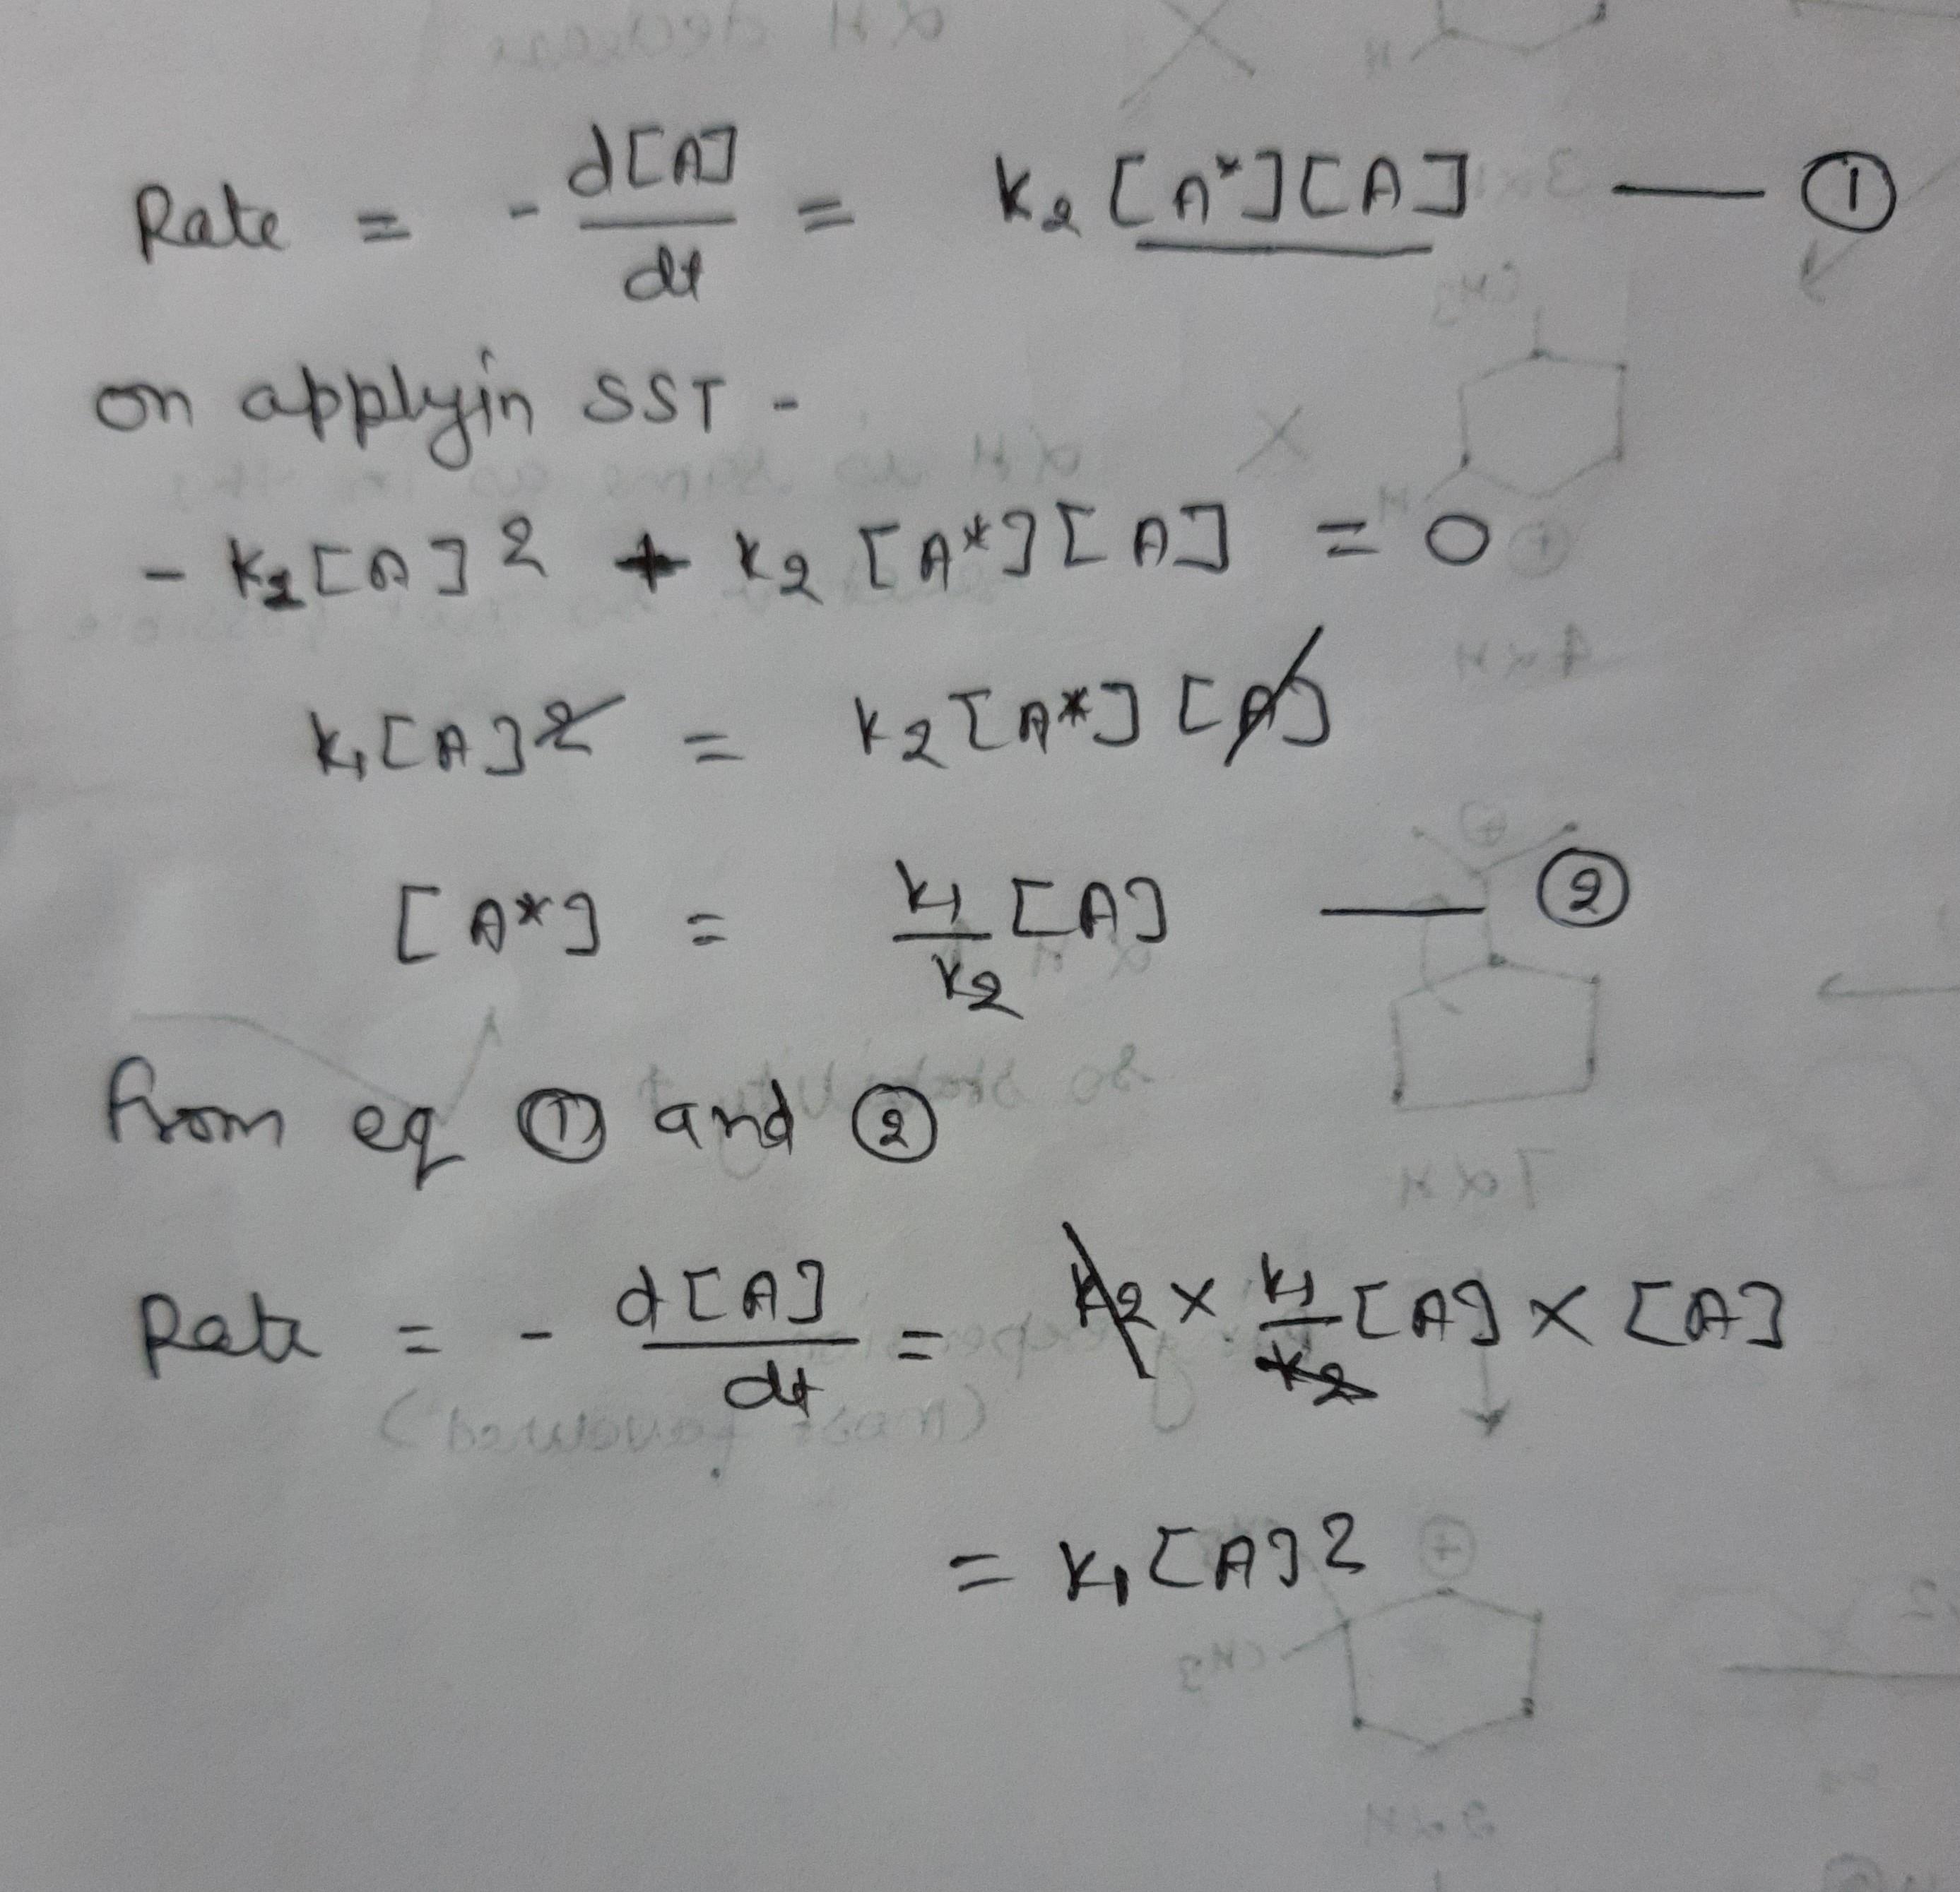 Rate = - d[A]/dt = k₂ [A*][A] — ①
on applyin SST -
- k₂[A]² + k₂ [A*][A] = 0
k₁[A]² = k₂[A*][A]
[A*] = k₁/k₂ [A] — ②
from eq ① and ②
Rate = - d[A]/dt = k₂ × k₁/k₂ [A] × [A]
= k₁[A]²